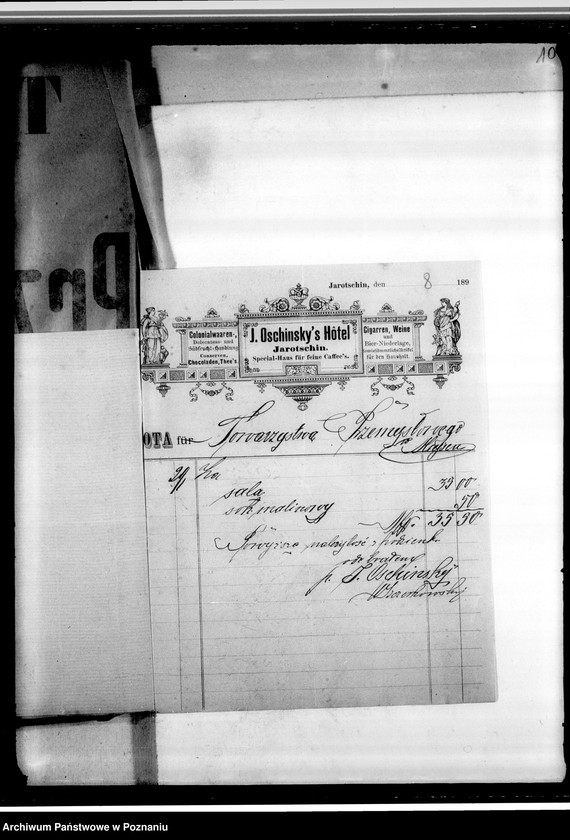 10
T
Jarotschin, den 8 189
Colonialwaaren,
Delicatess- und
Südfrucht-Handlung
Conserven,
Chocoladen, Thee's.
J. Oschinsky's Hôtel
Jarotschin.
Special-Haus für feine Caffee's.
Cigarren, Weine
und
Bier-Niederlage,
für den Ausschnitt.
OTA für Towarzystwa Przemysłowego
Za
sala 35 00
sok malinowy 50
Mk. 35 50
Powyższą należytość
odebrałem
p. J. Oschinsky
Archiwum Państwowe w Poznaniu